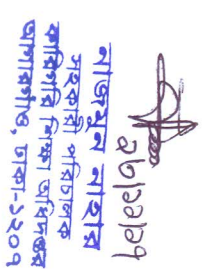 নাজমুন নাহার
সহকারী পরিচালক
কারিগরি শিক্ষা অধিদপ্তর
আগারগাঁও, ঢাকা-১২০৭